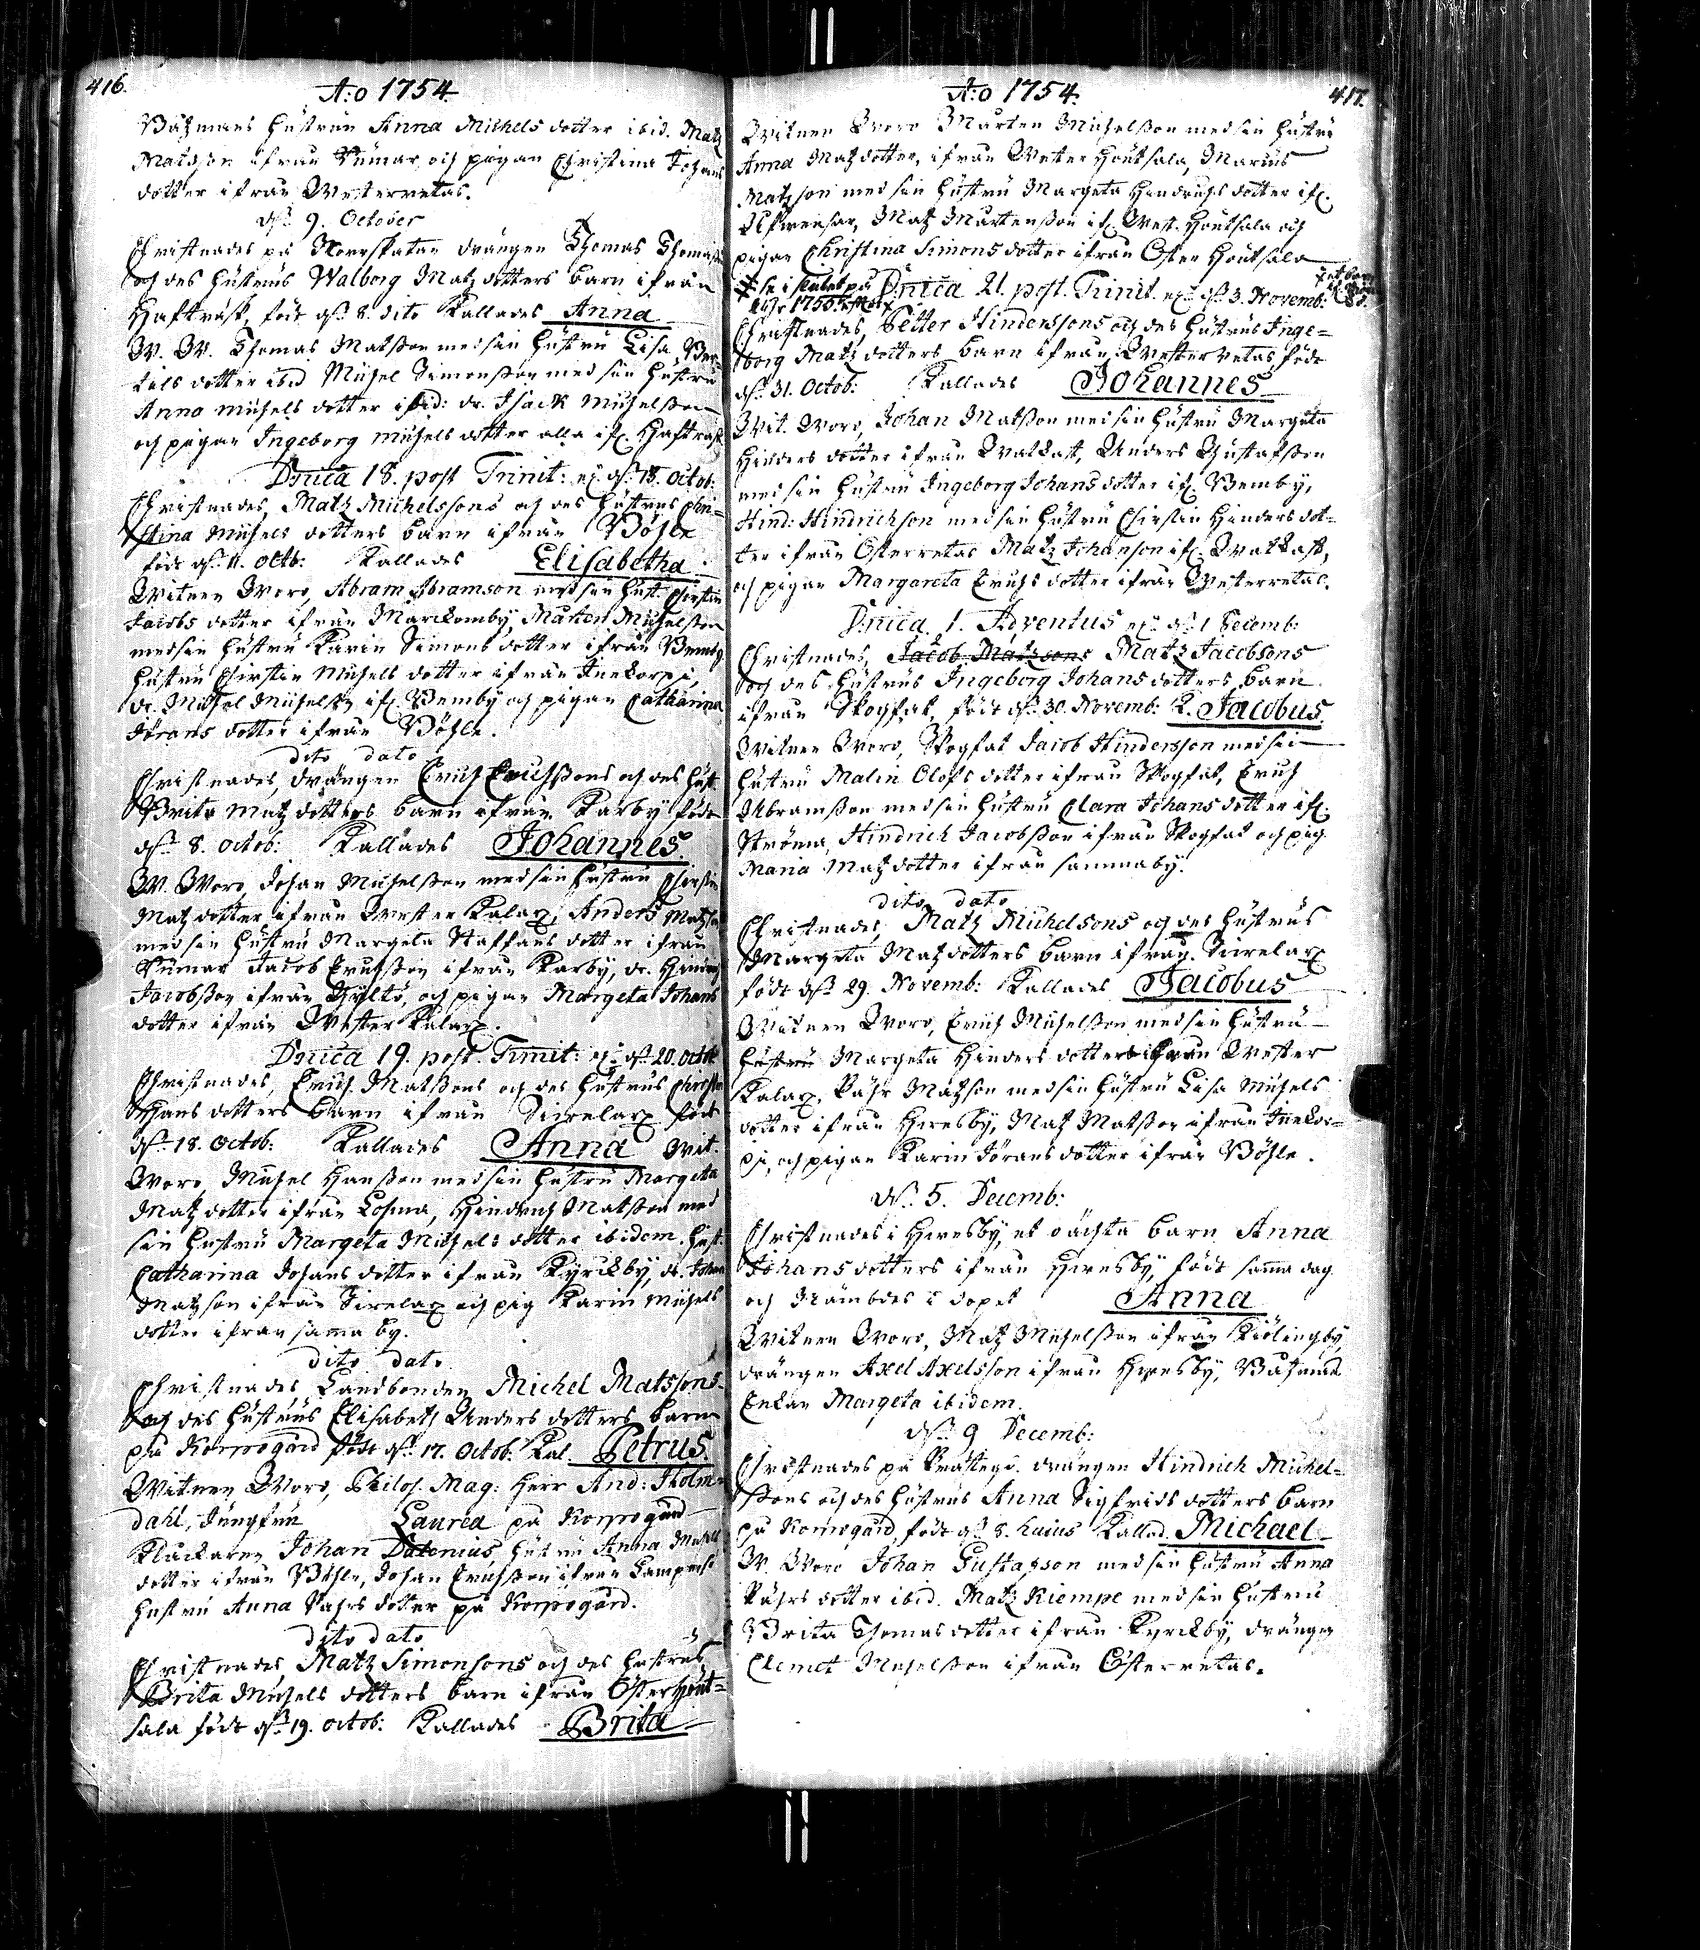 416.
A:o 1754.
Båtzmans hustrun Anna Michels dotter ibid. Matz
Matsson ifrån Rumar och pigan Christina Johans
dotter ifrån Westerretas.
d. 9. October
Christnades på Norrskatan drängen Thomas Thomass
och des hustrus Walborg Matz dotters barn ifrån
Haftråsk, född d. 8. dito Kallades Anna
W. W. Thomas Matsson med sin hustru Lisa Ber
tils dotter ibid Michel Simonsson med sin hustru
Anna Michels dotter ibid: dr. Isack Michelsson
och pigan Ingeborg Michels dotter alla if. Haftråsk
Dnica 18. post Trinit: ej d. 13. Octob:
Christnades, Matz Michelssons och des hustrus Chri-
stina Michels dotters barn ifrån Böhle
född d. 11. Octb: Kallades Elisabetha.
Witnen Woro, Abram Abramson med sin hust. Chirstin
Jacobs dotter ifrån Marckomby, Mårten Michelsson
med sin hustru Karin Simons dotter ifrån Bemby
hustru Chirstin Michels dotter ifrån Finckorpi,
dr. Michel Michelss. if. Bemby och pigan Catharina
Jörans dotter ifrån Böhle.
dito dato
Christnades, drängen Erich Erichssons och des hust.
Brita Matz dotters barn ifrån Karby född
d. 8. Octob: Kallades Johannes.
W. Woro, Johan Michelsson med sin hustru Chirstin
Matz dotter ifrån Wester Kalax, Anders Matzs
med sin hustru Margeta Staffans dotter ifrån
Rumar Jacob Erichsson ifrån Karby, dr. Hindrich
Jacobsson ifrån Gyltö, och pigan Margeta Johans
dotter ifrån Wester Kalax.
Dnica 19. post. Trinit: ej d. 20. Octob:
Christnades, Erich Matssons och des hustrus Christin
Hans dotters barn ifrån Sirelax född
d. 18. Octob: Kallades Anna Wit.
Woro, Michel Hansson med sin hustru Margeta
Matz dotter ifrån Lohma, Hindrich Matsson med
sin hustru Margeta Michels dotter ibidem. Hust.
Catharina Johans dotter ifrån Kyrckby, dr. Johan
Matzson ifrån Sirelax och pig Karin Michels
dotter ifrån samma by.
dito dato
Christnades, Landbonden Michel Matssons
och des hustrus Elisabeth Anders dotters barn
på Korpogård född d. 17. Octob. Kal. Petrus.
Witnen Woro, Philos. Mag: Herr And: Holm-
dahl, Jungfru Laurea på Korpogård
Klåckaren Johan Dalenius, hustru Anna Michels
dotter ifrån Böhle, Johan Erichsson ifrån
hustru Anna Påhrs dotter på Korpogård.
dito dato
Christnades, Matz Simonsons och des hustrus
Brita Michels dotters barn ifrån Österhout-
sala född d. 19. Octob: Kallades Brita
417.
A:o 1754.
Witnen Woro Mårten Michelsson med sin hustru
Anna Matz dotter, ifrån Wester Houtsala, Marius
Matzson med sin hustru Margeta Hindrichs dotter if.
Matz Mårtensson if. West. Houtsala och
pigan Christina Simons dotter ifrån Öster Houtsala
Dnica 21. post. Trinit. ej d. 3. Novemb:
Christnades, Petter Hinderssons och des hustrus Inge-
borg Matz dotters barn ifrån Westerretas född
d. 31. Octob: Kallades Johannes
Wit. Woro, Johan Matsson med sin hustru Margeta
Hinders dotter ifrån Wattkast, Anders Gustafsson
med sin hustru Ingeborg Johans dotter if. Bemby,
Hind: Hindrichson med sin hustru Chirstin Hinders dot-
ter ifrån Österretas Matz Johanson if. Wattkast,
och pigan Margareta Erichs dotter ifrån Westerretas.
Dnica. 1. Adventus ej d. 1 Decemb:
Christnades, Jacob Matzsons Matz Jacobsons
och des hustrus Ingeborg Johans dotters barn
ifrån Skogfat, född d. 30. Novemb: K. Jacobus.
Witnen Woro, Skogfat Jacob Hindersson med sin
hustru Malin Olofs dotter ifrån Skogfat, Erich
Abramsson med sin hustru Clara Johans dotter if.
Ströma, Hindrich Jacobsson ifrån Skogfat och pig
Maria Matz dotter ifrån samma by.
dito dato
Christnades, Matz Michelsons och des hustrus
Margeta Matz dotters barn ifrån Sirelax
född d. 29. Novemb: Kallades Jacobus
Witnen Woro, Erich Michelsson med sin hustru
hustru Margeta Hinders dotter ifrån Wester
Kalax, Påhr Matzson med sin hustru Lisa Michels
dotter ifrån Hvesby, Matz Matsson ifrån Finckor-
pi, och pigan Karin Jörans dotter ifrån Böhle.
d. 5. Decemb:
Christnades i Hvesby, et oächta barn Anna
Johans dotters ifrån Hvesby, född samma dag
och nämbdes i dopet Anna
Witnen Woro, Matz Michelsson ifrån Kiölingby,
drängen Axel Axelsson ifrån Hvesby, Båtzmans
Enkan Margeta ibidem.
d. 9 Decemb:
Christnades på Prästegd. drängen Hindrich Michel-
ssons och des hustrus Anna Sigfrids dotters barn
på Korpogård, född d. 8. huius Kallad. Michael
W. Woro Johan Gustafson med sin hustru Anna
Påhrs dotter ibid. Matz Kiempe med sin hustru
Brita Thomas dotter ifrån Kyrckby, drängen
Clemet Michelsson ifrån Österretas.